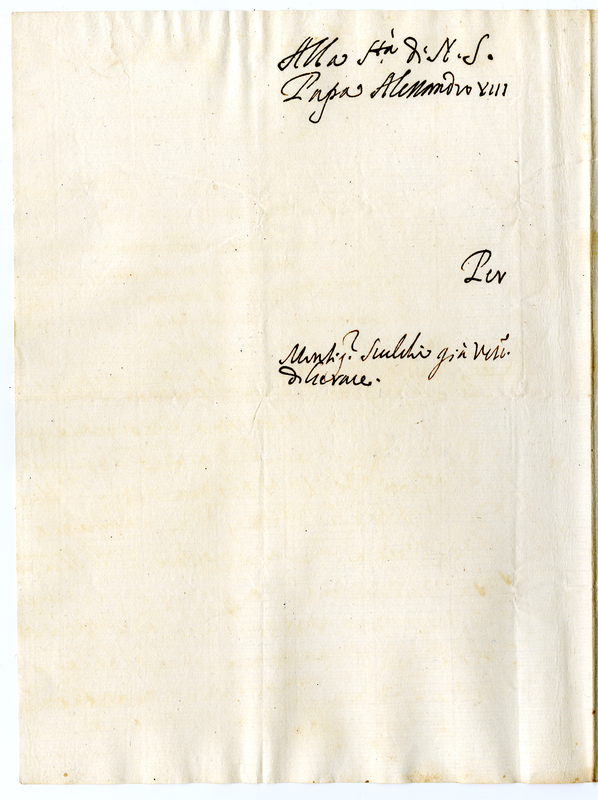 Alla S.tà di N. S.
Papa Alessandro VIII
Per
Monsig.r già Vesc.
di Gerace.